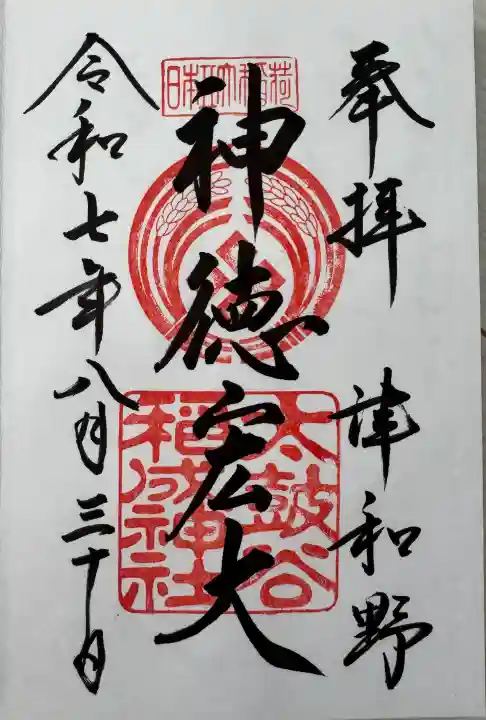 奉拝 津和野
日本五大稲荷
神徳宏大
太皷谷
稲成神社
令和七年八月三十日